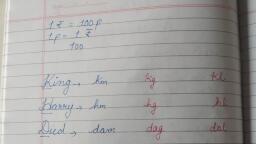 1 ₹ = 100 p
1 p = 1 ₹
100
King → km kg kl
Harry → hm hg hl
Died → dam dag dal